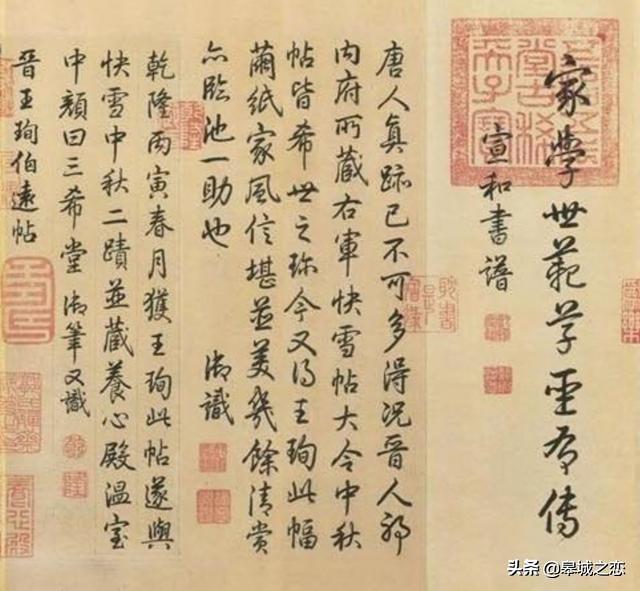 家學世範草聖有傳
宣和書譜
唐人真跡已不可多得況晉人耶
内府所藏右軍快雪帖大令中秋
帖皆希世之珍今又得王珣此幅
繭紙家風信堪並美幾餘清賞
亦臨池一助也 御識
乾隆丙寅春月獲王珣此帖遂與
快雪中秋二蹟並藏養心殿温室
中顔曰三希堂 御筆又識
晉王珣伯遠帖
头条 @皋城之恋